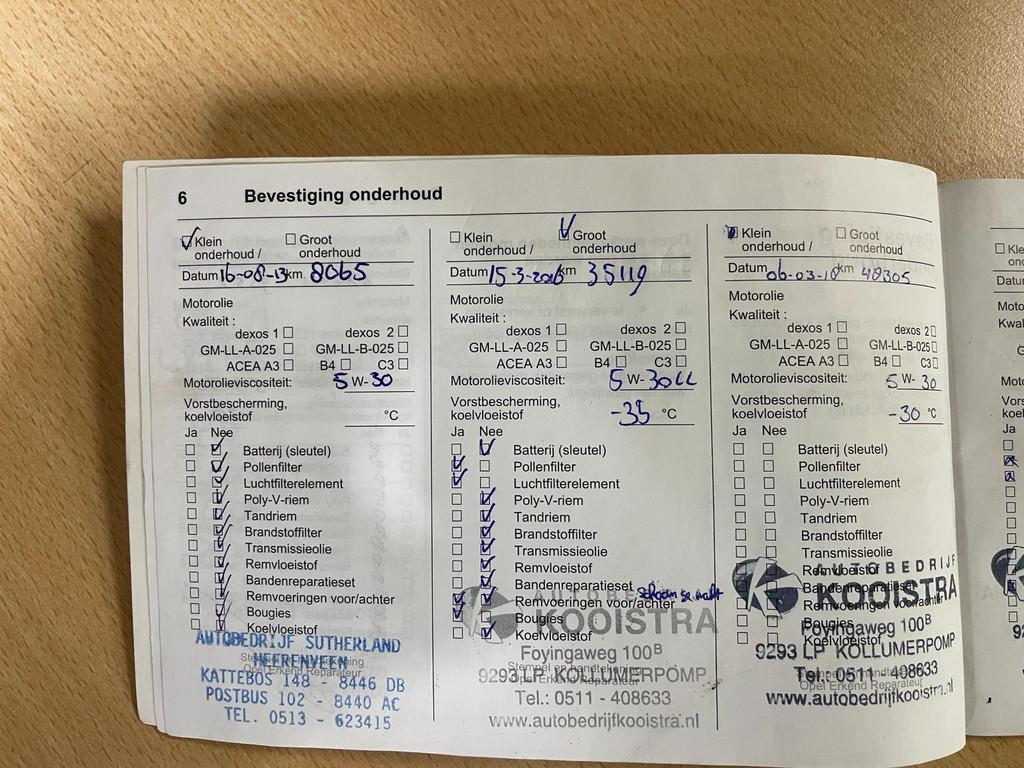 6 Bevestiging onderhoud
Klein onderhoud / Groot onderhoud
Datum 16-08-13 km 8065
Motorolie
Kwaliteit :
dexos 1 dexos 2
GM-LL-A-025 GM-LL-B-025
ACEA A3 B4 C3
Motorolieviscositeit: 5 W- 30
Vorstbescherming,
koelvloeistof °C
Ja Nee
Batterij (sleutel)
Pollenfilter
Luchtfilterelement
Poly-V-riem
Tandriem
Brandstoffilter
Transmissieolie
Remvloeistof
Bandenreparatieset
Remvoeringen voor/achter
Bougies
Koelvloeistof
Stempel en handtekening
Opel Erkend Reparateur
AUTOBEDRIJF SUTHERLAND
HEERENVEEN
KATTEBOS 148 - 8446 DB
POSTBUS 102 - 8440 AC
TEL. 0513 - 623415
Klein onderhoud / Groot onderhoud
Datum 15-3-2016 km 35119
Motorolie
Kwaliteit :
dexos 1 dexos 2
GM-LL-A-025 GM-LL-B-025
ACEA A3 B4 C3
Motorolieviscositeit: 5 W- 30 LL
Vorstbescherming,
koelvloeistof -35 °C
Ja Nee
Batterij (sleutel)
Pollenfilter
Luchtfilterelement
Poly-V-riem
Tandriem
Brandstoffilter
Transmissieolie
Remvloeistof
Bandenreparatieset
Remvoeringen voor/achter schoon gemaakt
Bougies
Koelvloeistof
Stempel en handtekening
Opel Erkend Reparateur
AUTOBEDRIJF
KOOISTRA
Foyingaweg 100B
9293 LP KOLLUMERPOMP
Tel.: 0511 - 408633
www.autobedrijfkooistra.nl
Klein onderhoud / Groot onderhoud
Datum 06-03-18 km 48305
Motorolie
Kwaliteit :
dexos 1 dexos 2
GM-LL-A-025 GM-LL-B-025
ACEA A3 B4 C3
Motorolieviscositeit: 5 W- 30
Vorstbescherming,
koelvloeistof -30 °C
Ja Nee
Batterij (sleutel)
Pollenfilter
Luchtfilterelement
Poly-V-riem
Tandriem
Brandstoffilter
Transmissieolie
Remvloeistof
Bandenreparatieset
Remvoeringen voor/achter
Bougies
Koelvloeistof
Stempel en handtekening
Opel Erkend Reparateur
AUTOBEDRIJF
KOOISTRA
Foyingaweg 100B
9293 LP KOLLUMERPOMP
Tel.: 0511 - 408633
www.autobedrijfkooistra.nl
Ja